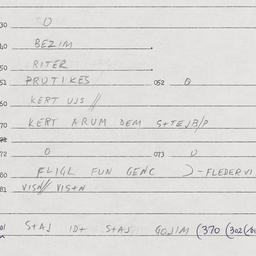 30 0
40 BEZIM
50 RITER
51 PRUTIKES 052 0
60 KERT UJS //
70 KERT ARUM DEM S+TEJB/P
72 0 073 0
80 FLIGL FUN GENC -FLEDERVI
81 VISN// VIS+N
01 S+AJ ID+ S+AJ GOJIM (370 (302/